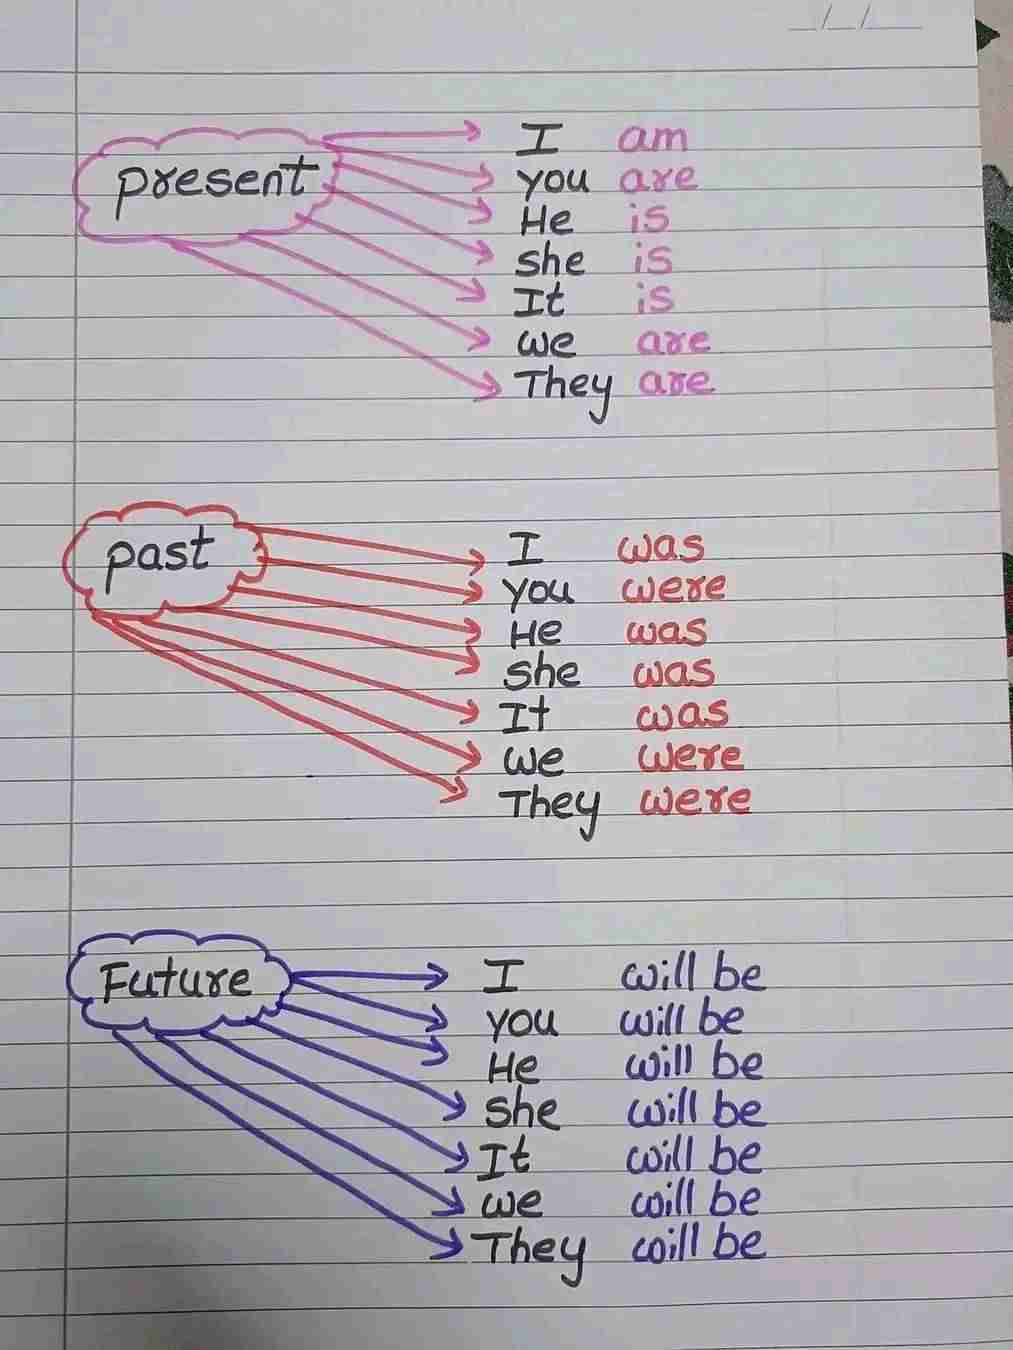 present
I am
you are
He is
she is
It is
we are
They are
past
I was
you were
He was
she was
It was
we were
They were
Future
I will be
you will be
He will be
she will be
It will be
we will be
They will be